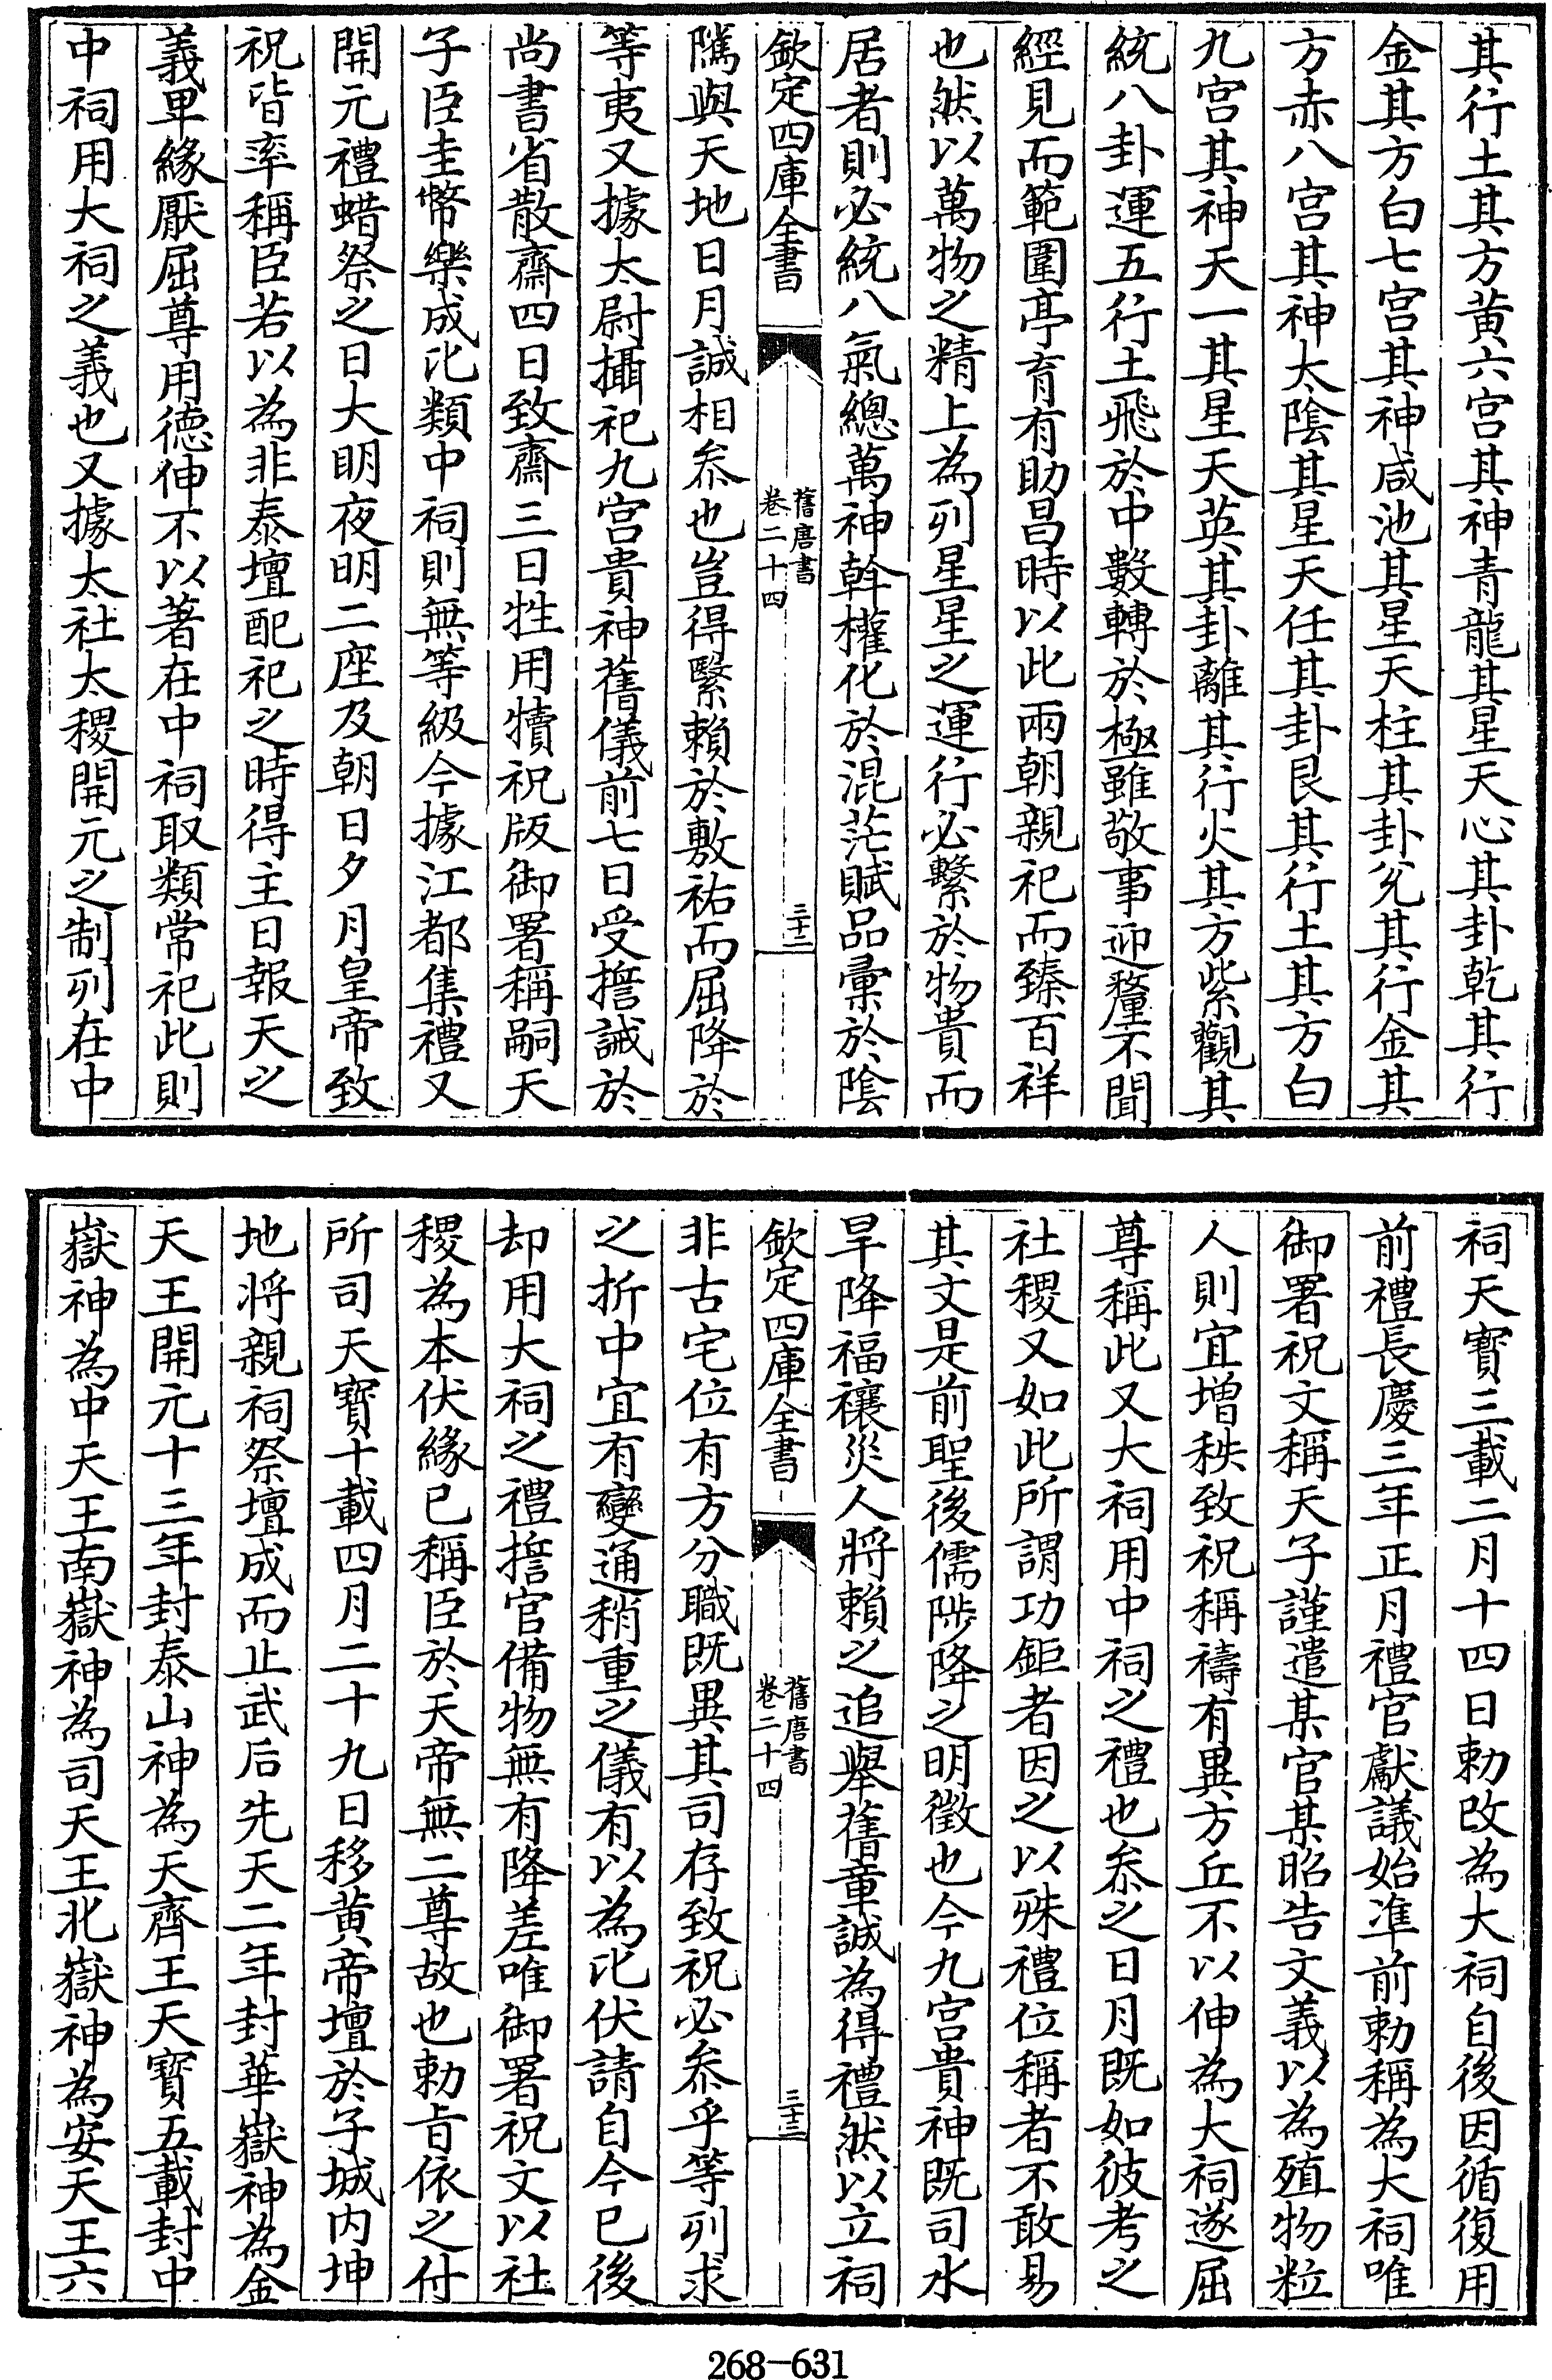 其行土其方黄六宫其神青龍其星天心其卦乾其行
金其方白七宫其神咸池其星天柱其卦兊其行金其
方赤八宫其神太隂其星天任其卦艮其行土其方白
九宫其神天一其星天英其卦離其行火其方紫觀其
統八卦運五行土飛於中數轉於極雖敬事迎釐不聞
經見而範圍亭育有助昌時以此兩朝親祀而臻百祥
也然以萬物之精上為列星星之運行必繫於物貴而
居者則必統八氣總萬神斡權化於混茫賦品彚於隂
欽定四庫全書
舊唐書
卷二十四
三十二
隲與天地日月誠相叅也豈得繄賴於敷祐而屈降於
等夷又據太尉攝祀九宫貴神舊儀前七日受誓誡於
尚書省散齋四日致齋三日牲用犢祝版御署稱嗣天
子臣圭幣樂成比類中祠則無等級今據江都集禮又
開元禮蜡祭之日大明夜明二座及朝日夕月皇帝致
祝皆率稱臣若以為非泰壇配祀之時得主日報天之
義卑緣厭屈尊用德伸不以著在中祠取類常祀此則
中祠用大祠之義也又據太社太稷開元之制列在中
祠天寶三載二月十四日勅改為大祠自後因循復用
前禮長慶三年正月禮官獻議始准前勅稱為大祠唯
御署祝文稱天子謹遣某官某昭告文義以為殖物粒
人則宜増秩致祝稱禱有異方丘不以伸為大祠遂屈
尊稱此又大祠用中祠之禮也叅之日月既如彼考之
社稷又如此所謂功鉅者因之以殊禮位稱者不敢易
其文是前聖後儒陟降之明徵也今九宫貴神既司水
旱降福禳災人將賴之追舉舊章誠為得禮然以立祠
欽定四庫全書
舊唐書
卷二十四
三十三
非古宅位有方分職既異其司存致祝必叅乎等列求
之折中宜有變通稍重之儀有以為比伏請自今已後
却用大祠之禮誓官備物無有降差唯御署祝文以社
稷為本伏緣已稱臣於天帝無二尊故也勅旨依之付
所司天寶十載四月二十九日移黄帝壇於子城内坤
地将親祠祭壇成而止武后先天二年封華嶽神為金
天王開元十三年封泰山神為天齊王天寶五載封中
嶽神為中天王南嶽神為司天王北嶽神為安天王六
268-631